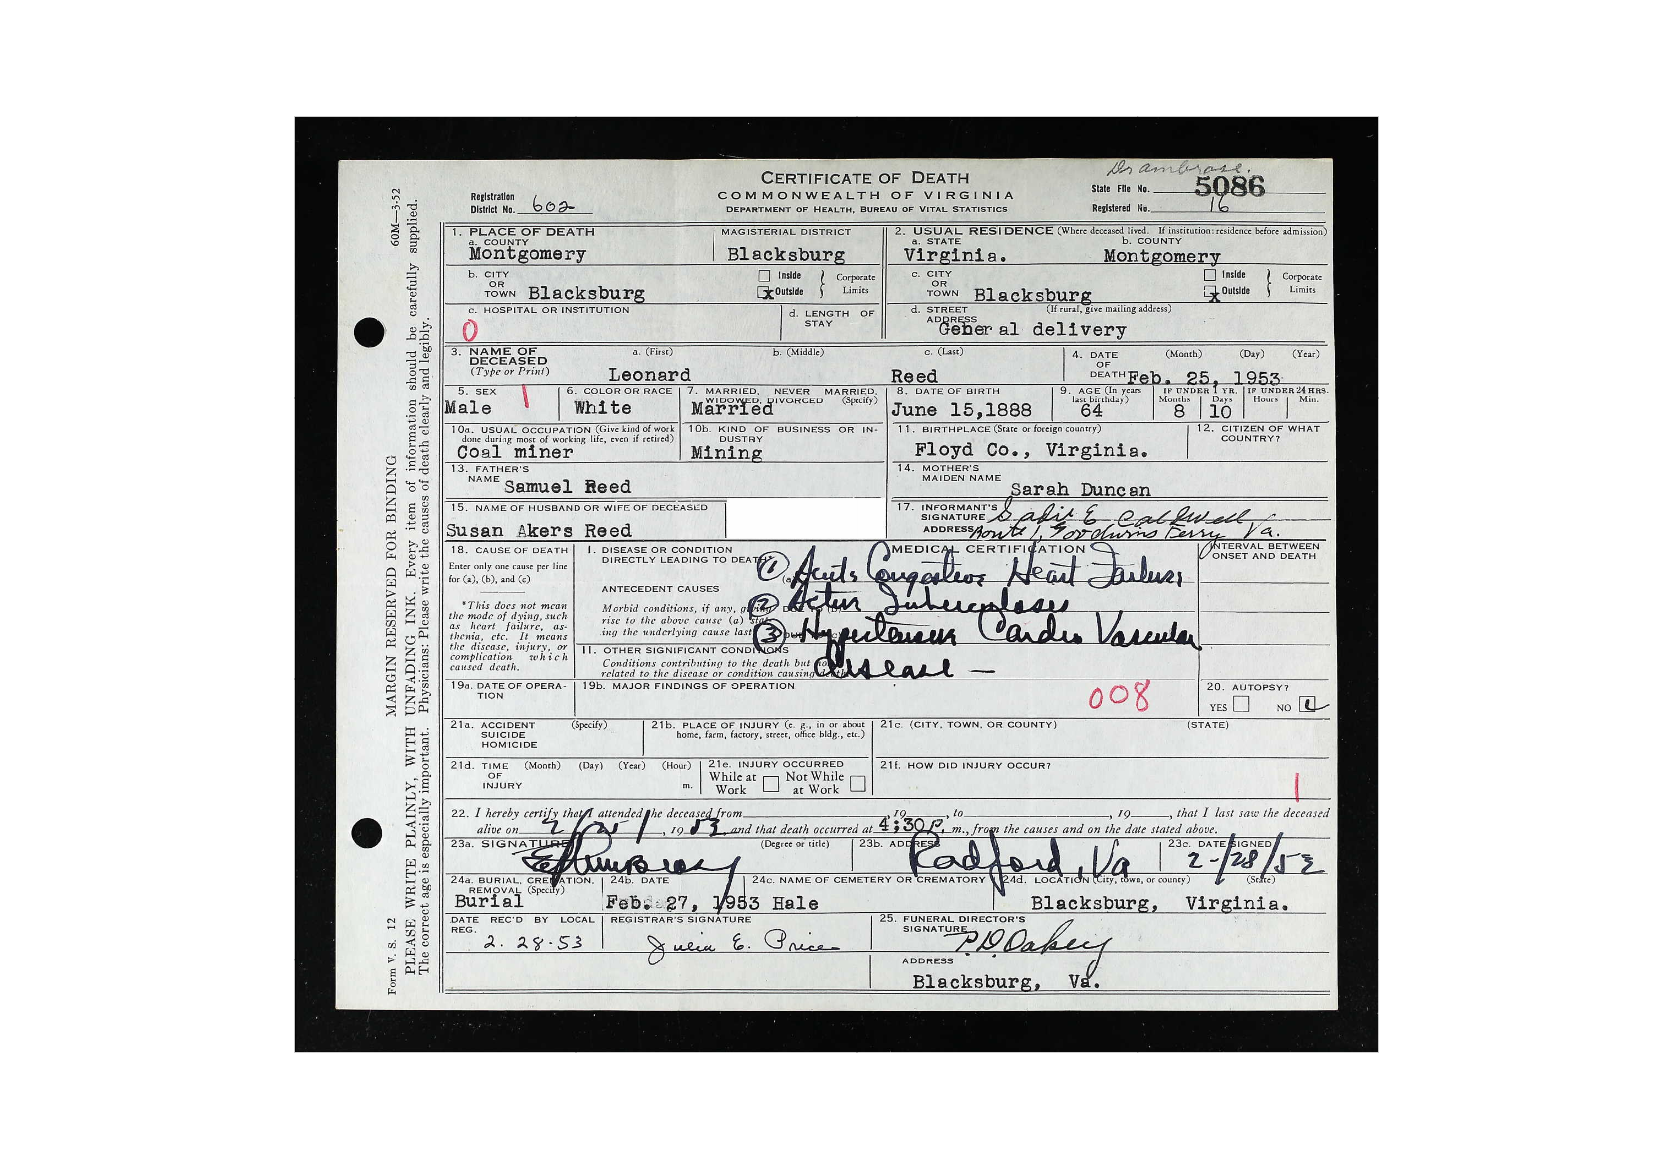 Dr ambrose.
CERTIFICATE OF DEATH
COMMONWEALTH OF VIRGINIA
DEPARTMENT OF HEALTH, BUREAU OF VITAL STATISTICS
Registration District No. 602
State File No. 5086
Registered No. 16
60M—3-52
MARGIN RESERVED FOR BINDING
PLEASE WRITE PLAINLY, WITH UNFADING INK. Every item of information should be carefully supplied.
The correct age is especially important. Physicians: Please write the causes of death clearly and legibly.
Form V. S. 12
1. PLACE OF DEATH
a. COUNTY Montgomery
MAGISTERIAL DISTRICT Blacksburg
2. USUAL RESIDENCE (Where deceased lived. If institution: residence before admission)
a. STATE Virginia.
b. COUNTY Montgomery
b. CITY OR TOWN Blacksburg
Inside x Outside } Corporate Limits
c. CITY OR TOWN Blacksburg
Inside x Outside } Corporate Limits
c. HOSPITAL OR INSTITUTION
0
d. LENGTH OF STAY
d. STREET ADDRESS (If rural, give mailing address)
General delivery
3. NAME OF DECEASED (Type or Print)
a. (First) Leonard
b. (Middle)
c. (Last) Reed
4. DATE OF DEATH (Month) (Day) (Year)
Feb. 25, 1953
5. SEX Male 1
6. COLOR OR RACE White
7. MARRIED, NEVER MARRIED, WIDOWED, DIVORCED (Specify) Married
8. DATE OF BIRTH June 15,1888
9. AGE (In years last birthday) 64
IF UNDER 1 YR. Months 8 Days 10
IF UNDER 24 HRS. Hours Min.
10a. USUAL OCCUPATION (Give kind of work done during most of working life, even if retired)
Coal miner
10b. KIND OF BUSINESS OR INDUSTRY
Mining
11. BIRTHPLACE (State or foreign country)
Floyd Co., Virginia.
12. CITIZEN OF WHAT COUNTRY?
13. FATHER'S NAME Samuel Reed
14. MOTHER'S MAIDEN NAME Sarah Duncan
15. NAME OF HUSBAND OR WIFE OF DECEASED
Susan Akers Reed
17. INFORMANT'S SIGNATURE Sadie E Caldwell
ADDRESS Route 1, Goodwins Ferry Va.
18. CAUSE OF DEATH
Enter only one cause per line for (a), (b), and (c)
*This does not mean the mode of dying, such as heart failure, asthenia, etc. It means the disease, injury, or complication which caused death.
MEDICAL CERTIFICATION
INTERVAL BETWEEN ONSET AND DEATH
I. DISEASE OR CONDITION DIRECTLY LEADING TO DEATH
(1) Acute Congestive Heart Failure
ANTECEDENT CAUSES
Morbid conditions, if any, giving rise to the above cause (a) stating the underlying cause last
(2) Active Tuberculosis
(3) Hypertensive Cardio Vascular
disease —
II. OTHER SIGNIFICANT CONDITIONS
Conditions contributing to the death but not related to the disease or condition causing death.
19a. DATE OF OPERATION
19b. MAJOR FINDINGS OF OPERATION
008
20. AUTOPSY?
YES NO
21a. ACCIDENT SUICIDE HOMICIDE (Specify)
21b. PLACE OF INJURY (e. g., in or about home, farm, factory, street, office bldg., etc.)
21c. (CITY, TOWN, OR COUNTY) (STATE)
21d. TIME OF INJURY (Month) (Day) (Year) (Hour) m.
21e. INJURY OCCURRED
While at Work Not While at Work
21f. HOW DID INJURY OCCUR?
1
22. I hereby certify that I attended the deceased from , 19 , to , 19 , that I last saw the deceased
alive on 2/25/, 1953, and that death occurred at 4:30 P. m., from the causes and on the date stated above.
23a. SIGNATURE (Degree or title)
23b. ADDRESS Radford, Va
23c. DATE SIGNED 2-/28/53
24a. BURIAL, CREMATION, REMOVAL (Specify) Burial
24b. DATE Feb. 27, 1953
24c. NAME OF CEMETERY OR CREMATORY Hale
24d. LOCATION (City, town, or county) (State)
Blacksburg, Virginia.
DATE REC'D BY LOCAL REG. 2.28-53
REGISTRAR'S SIGNATURE Julia E. Price
25. FUNERAL DIRECTOR'S SIGNATURE P.D. Oakey
ADDRESS
Blacksburg, Va.